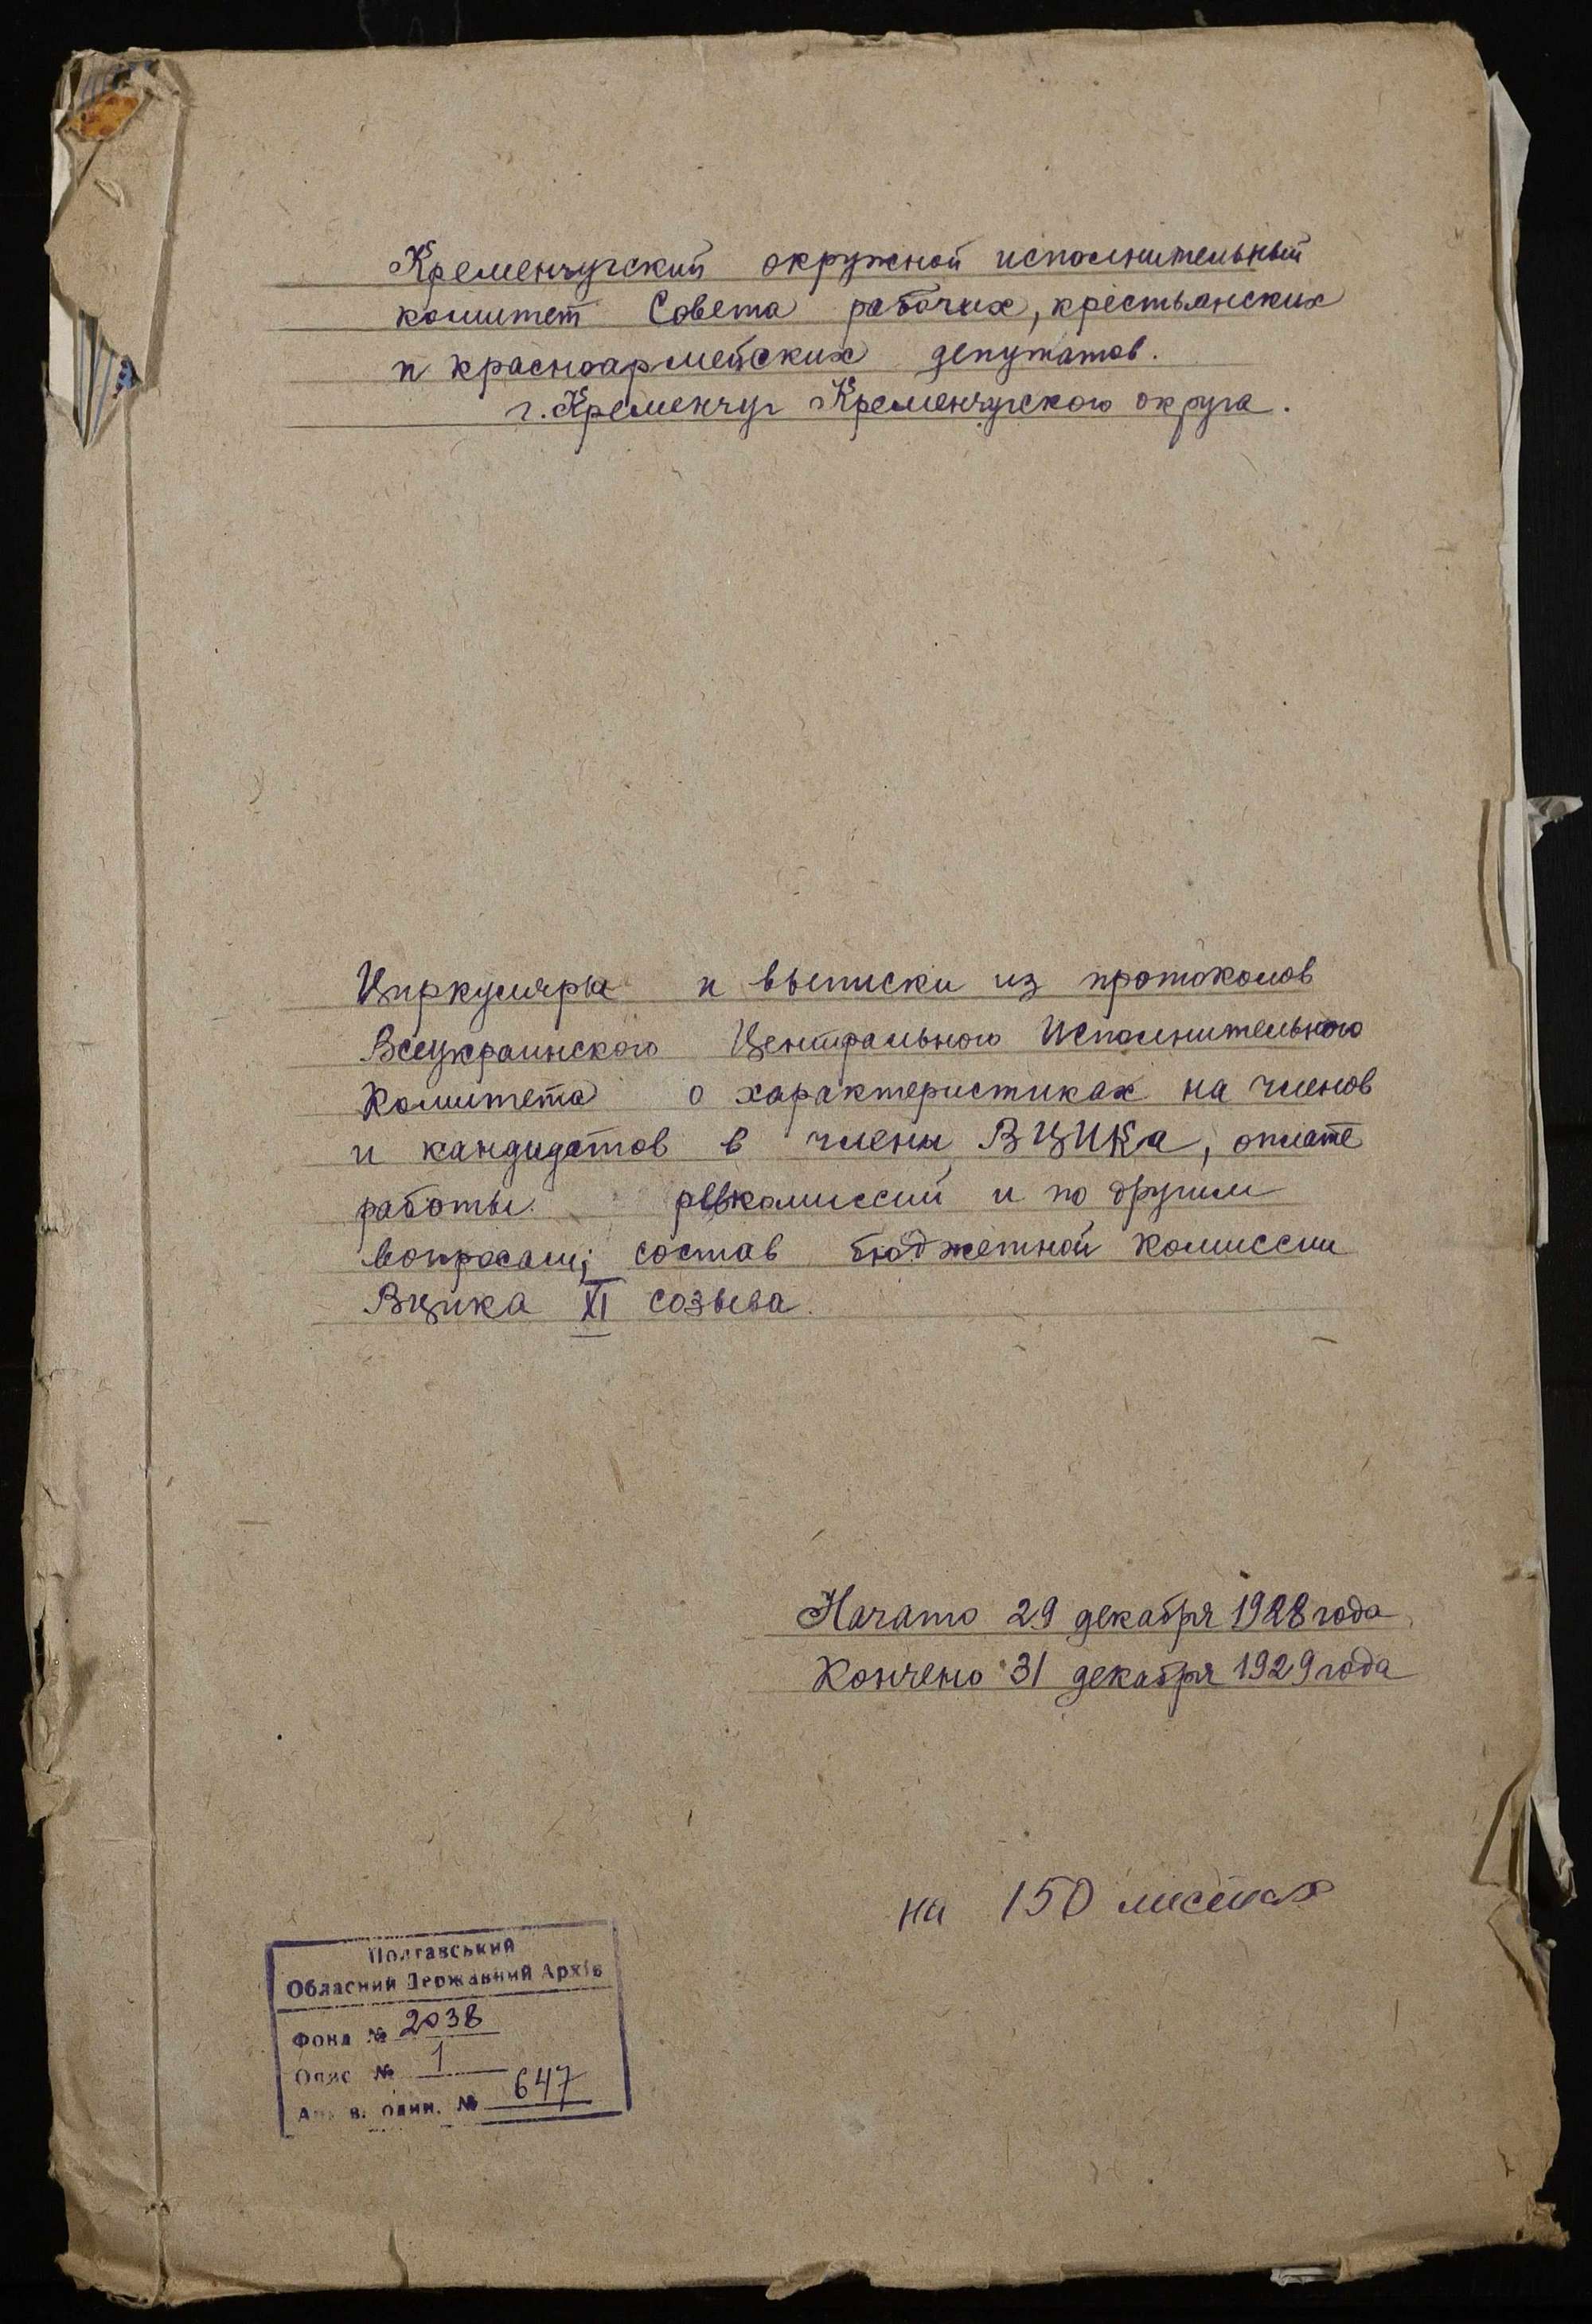 Кременчугский окружной исполнительный
комитет Совета рабочих, крестьянских
и красноармейских депутатов.
г. Кременчуг Кременчугского округа.
Циркуляры и выписки из протоколов
Всеукраинского Центрального Исполнительного
Комитета о характеристиках на членов
и кандидатов в члены ВЦИКа, оплате
работы ревкомиссий и по другим
вопросам; состав бюджетной комиссии
Вцика XI созыва.
Начато 29 декабря 1928 года
Кончено 31 декабря 1929 года
на 150 листах
Полтавський
Обласний Державний Архів
Фонд № 2038
Опис № 1
один. № 647